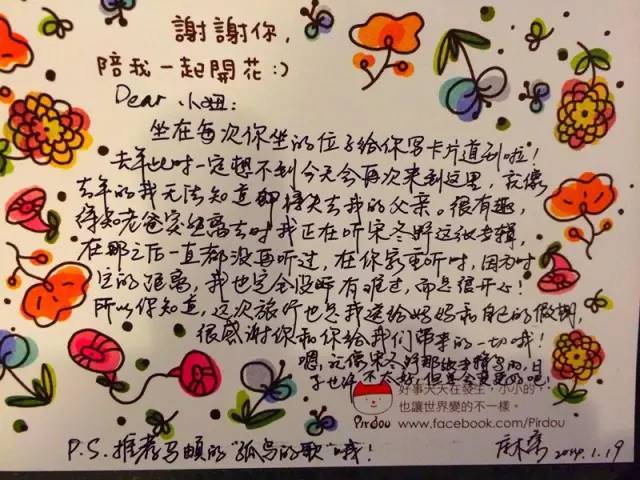 謝謝你,
陪我一起開花:)
Dear 小妞:
坐在每次你坐的位子给你写卡片道别啦!
去年此时一定想不到今天会再次来到这里,就像
去年的我无法知道即将失去我的父亲。很有趣,
得知老爸突然离去时我正在听宋冬野这张专辑,
在那之后一直都没再听过,在你家重听时,因为时
空的距离,我也完全没有难过,而是很开心!
所以你知道,这次旅行也是我送给妈妈和自己的假期,
很感谢你和你给我们带来的一切哦!
嗯,就像宋冬野那张专辑写的,日
子也许不太好,但总会更好的吧!
好事天天在發生,小小的,
也讓世界變的不一樣。
Pirdou
www.facebook.com/Pirdou
P.S. 推荐马頔的“孤鸟的歌”哦!
2014.1.19